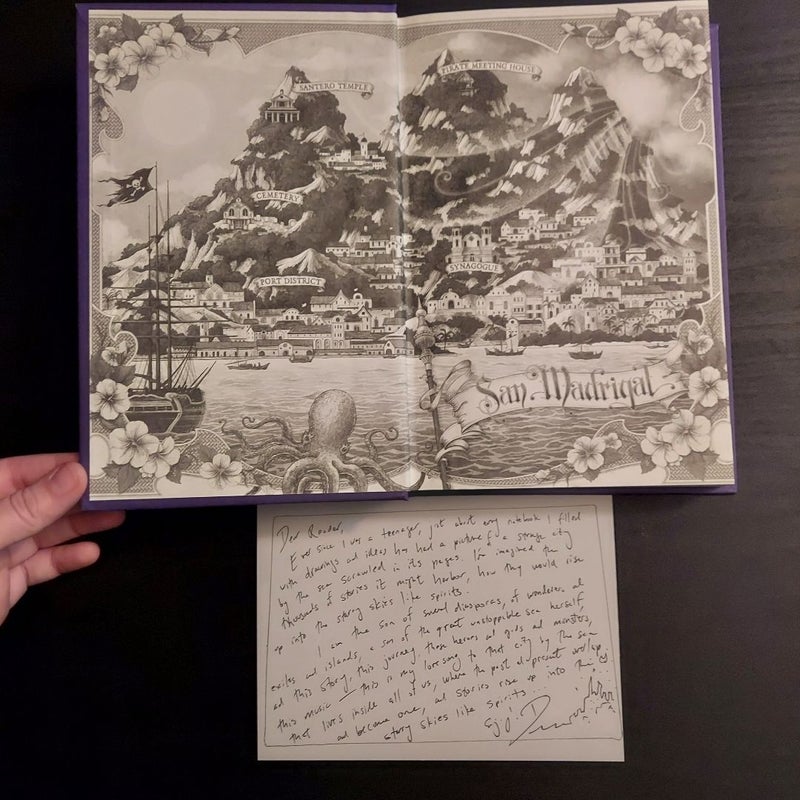 SANTERO TEMPLE
PIRATE MEETING HOUSE
CEMETERY
SYNAGOGUE
PORT DISTRICT
San Madrigal
Dear Reader,
Ever since I was a teenager, just about every notebook I filled
with drawings and ideas has had a picture of a strange city
by the sea scrawled in its pages. I'd imagined the
thousands of stories it might harbor, how they would rise
up into the starry skies like spirits.
I am the son of several diasporas, of wonderers and
exiles and islands, a son of the great unstoppable sea herself,
and this story, this journey, these heroes and gods and monsters,
this music — this is my lovesong to that city by the sea
that lives inside all of us, where the past and present overlap
and become one, and stories rise up into the
starry skies like spirits...